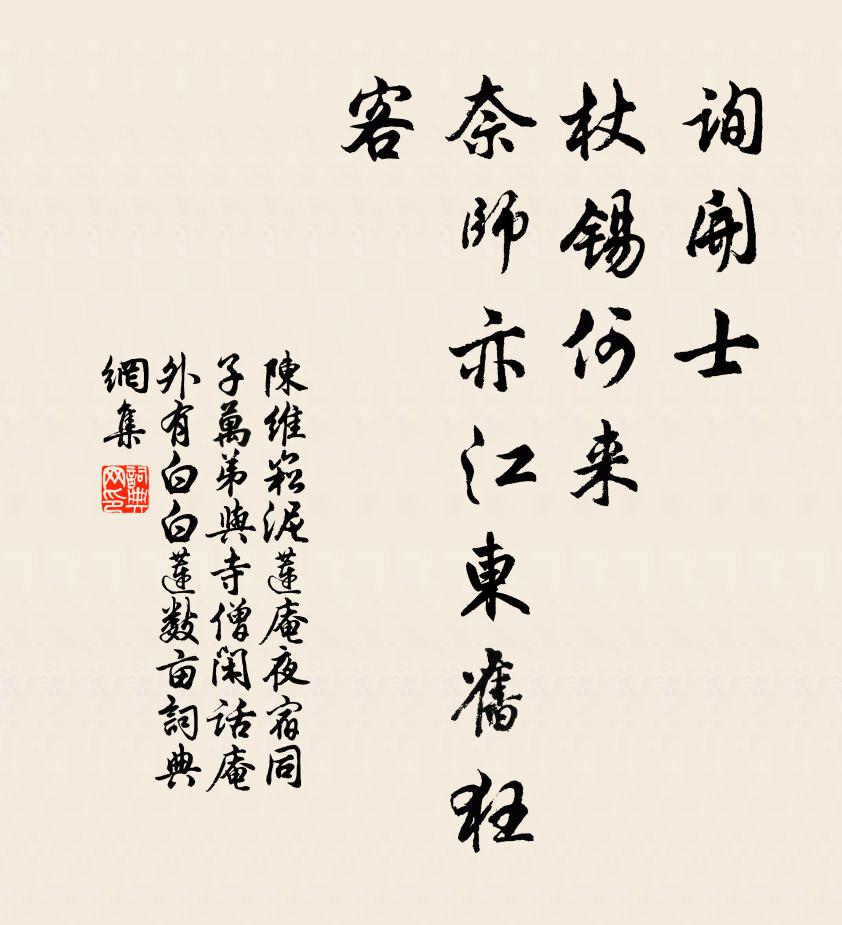 詢開士
杖錫何来
奈師亦江東舊狂
客
陳維崧泥蓮庵夜宿同
子萬弟與寺僧閑話庵
外有白白蓮數亩詞典
網集
詞典
网印